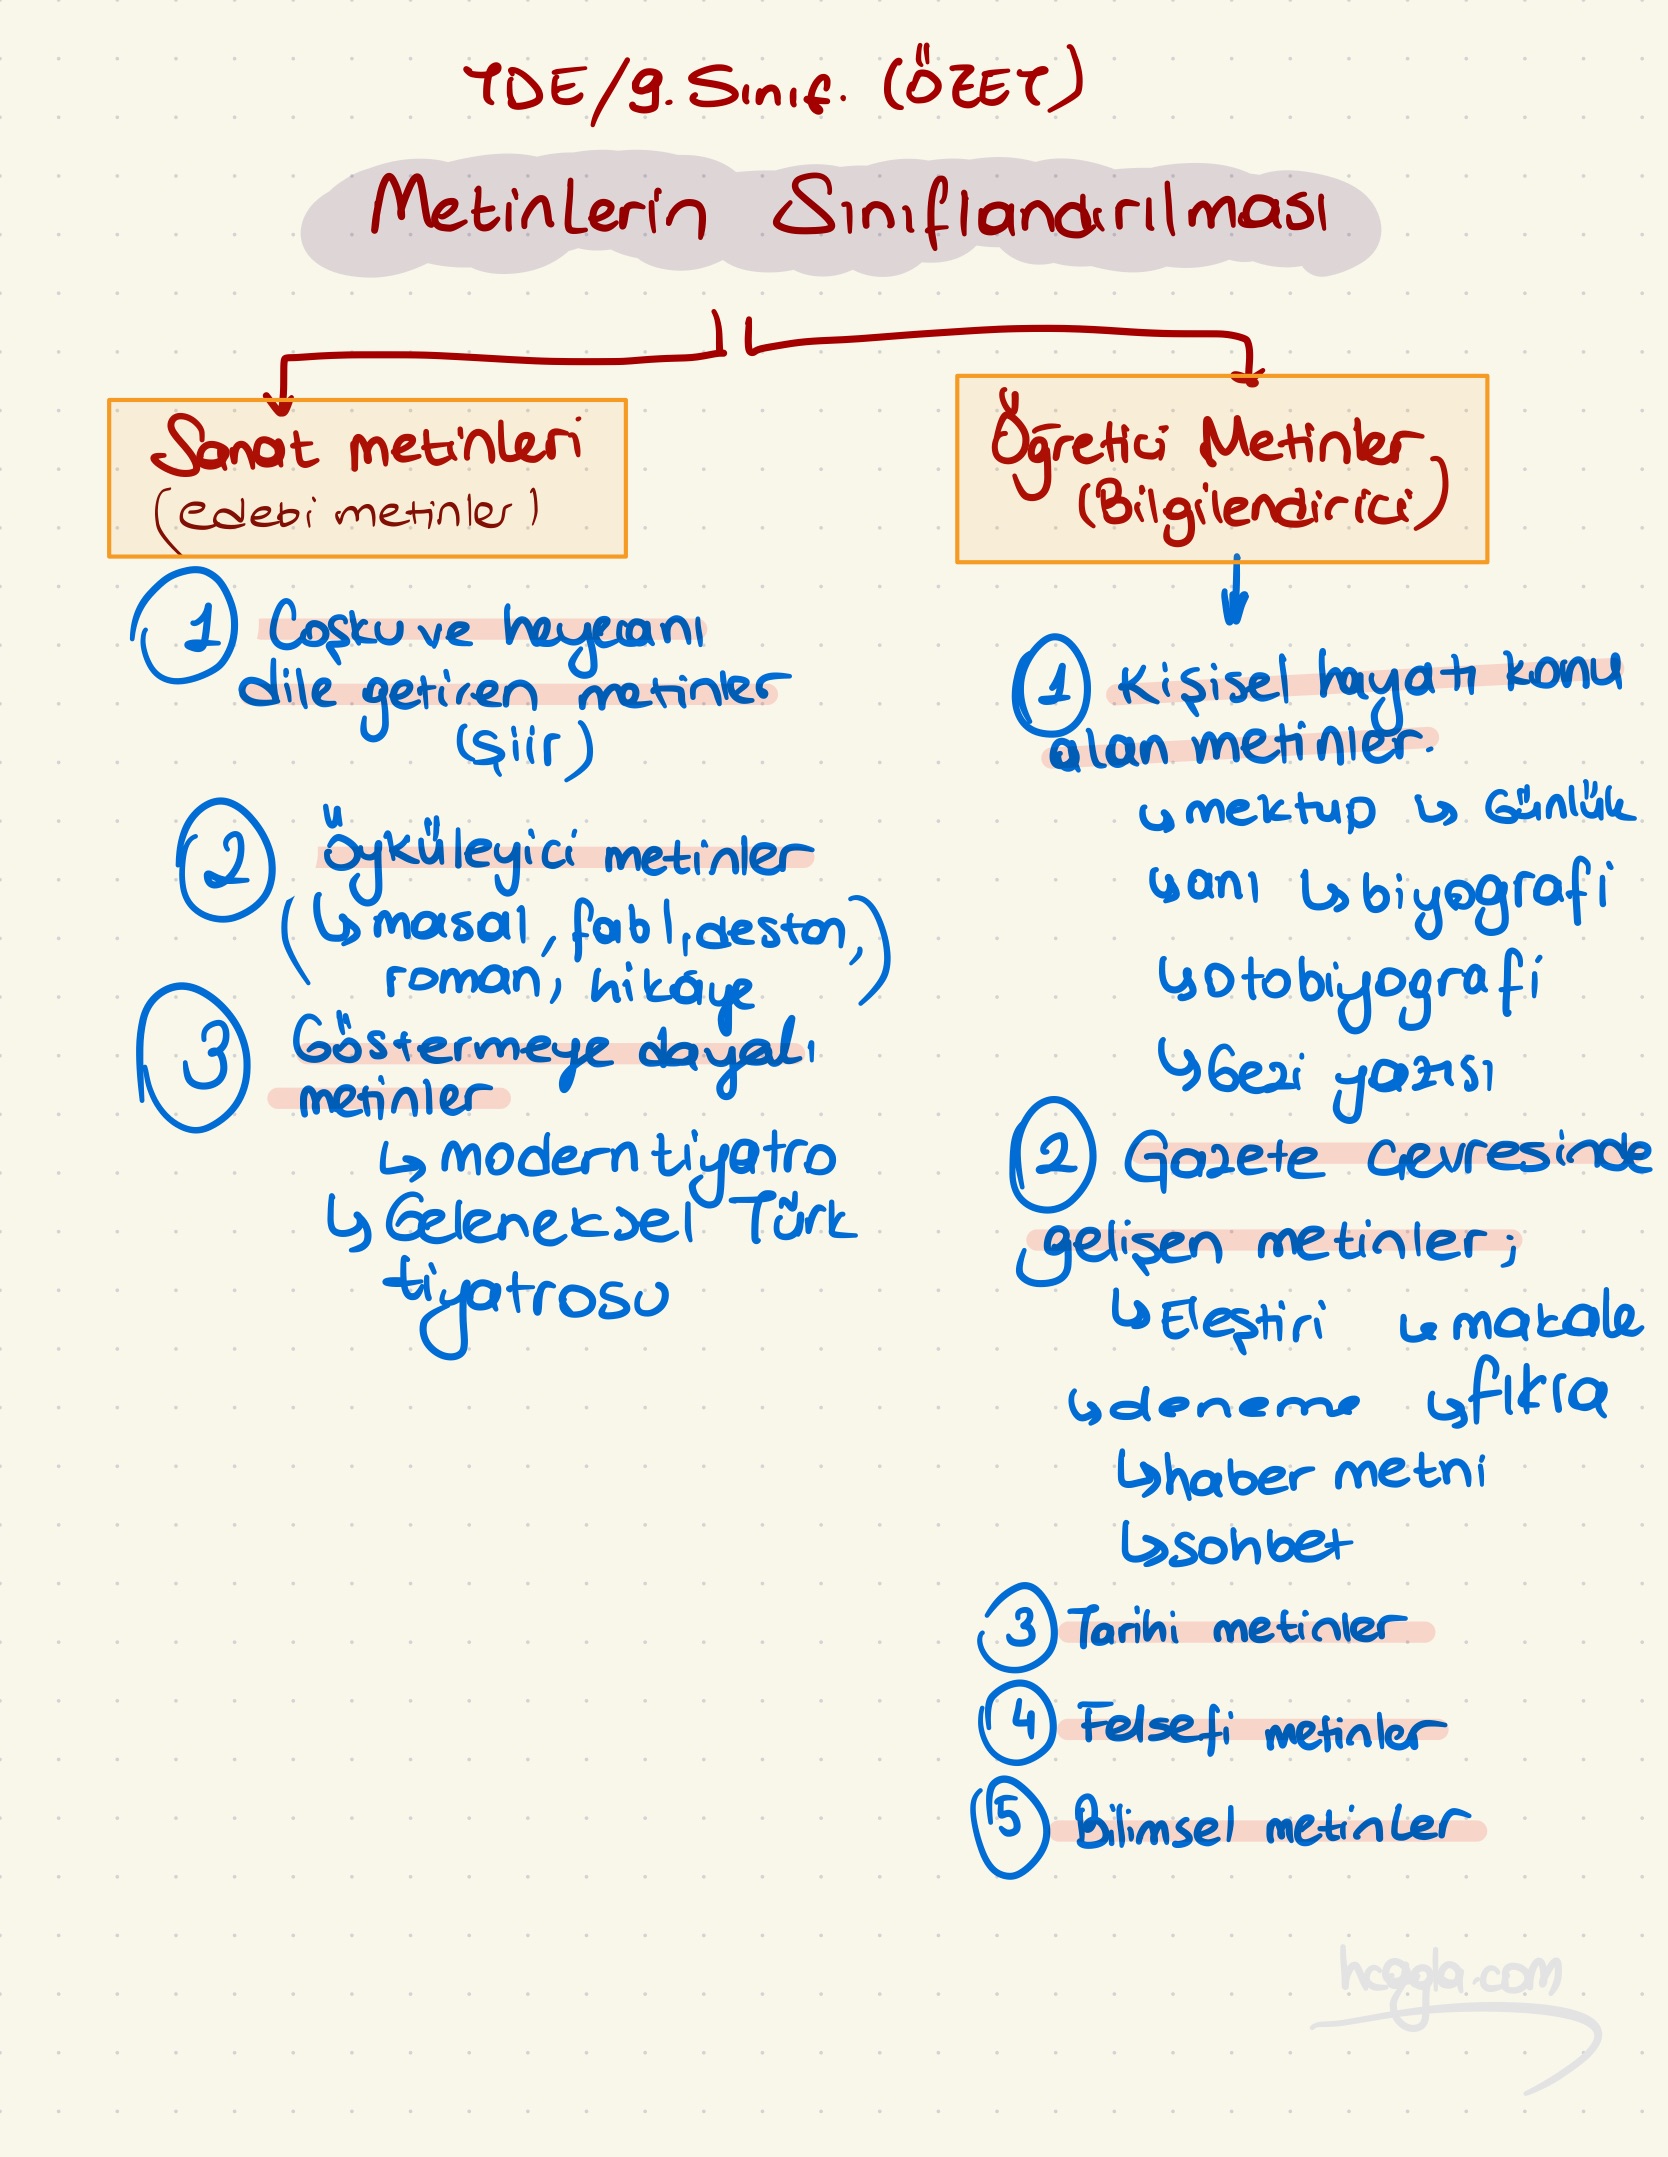 TDE/9. Sınıf. (ÖZET)
Metinlerin Sınıflandırılması
Sanat metinleri
(edebi metinler)
1 Coşku ve heyecanı
dile getiren metinler
(Şiir)
2 Öyküleyici metinler
(↳ masal, fabl, destan,
roman, hikaye)
3 Göstermeye dayalı
metinler
↳ modern tiyatro
↳ Geleneksel Türk
tiyatrosu
Öğretici Metinler
(Bilgilendirici)
1 Kişisel hayatı konu
alan metinler.
↳ mektup ↳ Günlük
↳ anı ↳ biyografi
↳ Otobiyografi
↳ Gezi yazısı
2 Gazete çevresinde
gelişen metinler;
↳ Eleştiri ↳ makale
↳ deneme ↳ fıkra
↳ haber metni
↳ sohbet
3 Tarihi metinler
4 Felsefi metinler
5 Bilimsel metinler